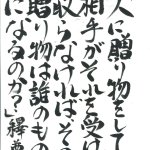 人に贈り物をして
相手がそれを受け
取らなければその
贈り物は誰のもの
になるのか?」釋